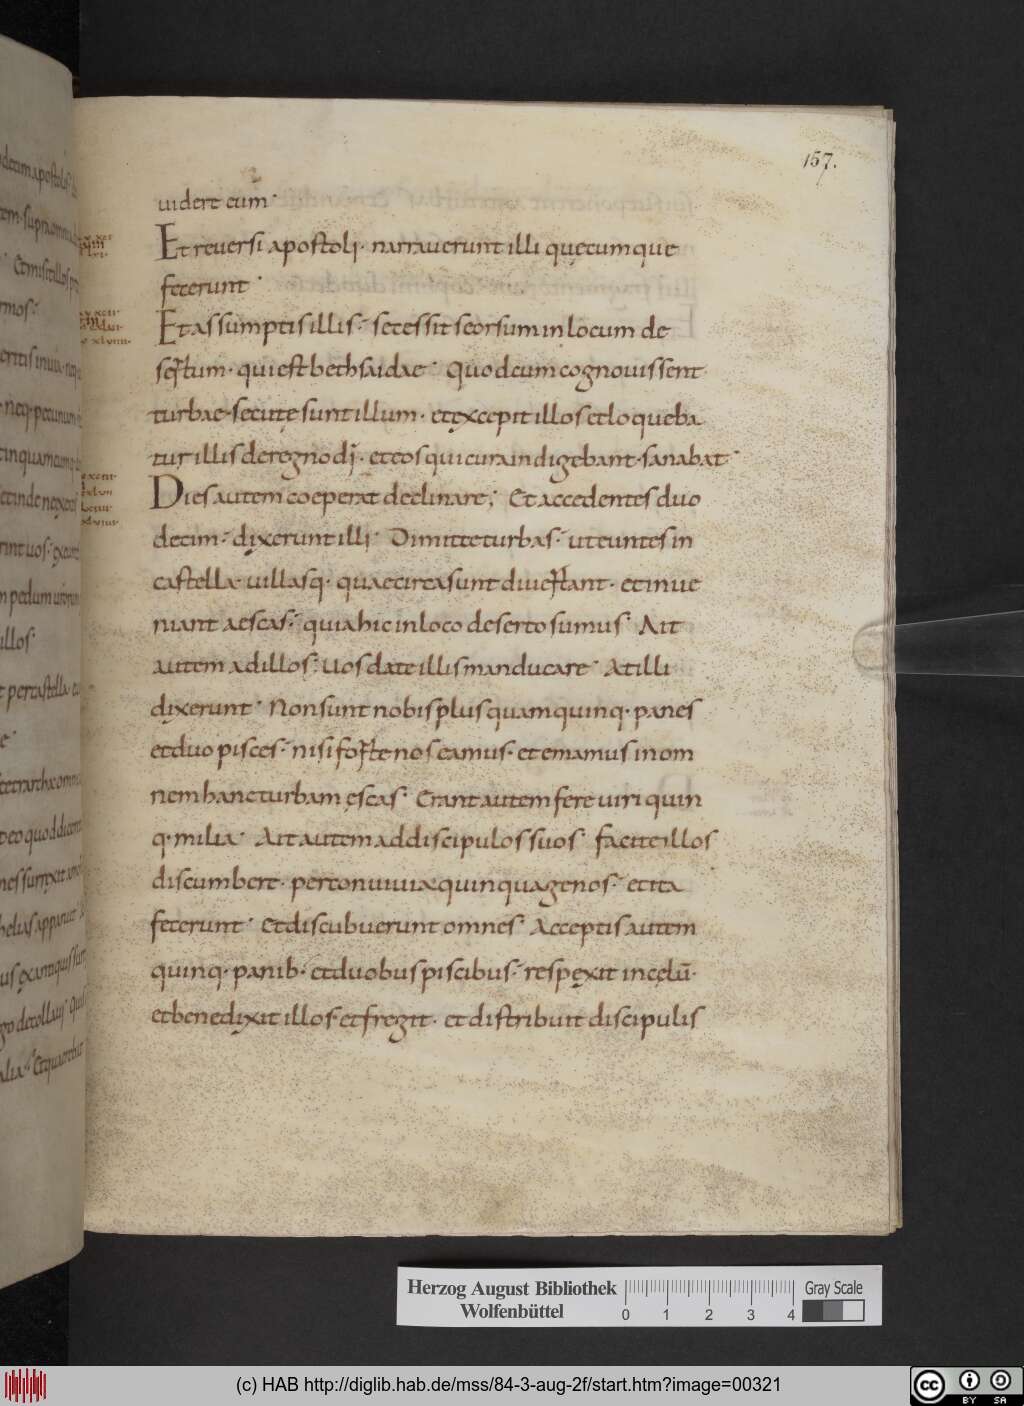 157.
uidere eum·
Et reuersi apostoli· narrauerunt illi quęcumque
fecerunt·
Et assumptis illis· secessit seorsum in locum de
sertum· qui est bethsaidae· Quod cum cognouissent
turbae secutę sunt illum· et excepit illos et loqueba
tur illis de regno di· et eos qui cura indigebant· sanabat·
Dies autem coeperat declinare; Et accedentes duo
decim· dixerunt illi· Dimitte turbas· ut euntes in
castella uillasq· quae circa sunt diuertant· et inue
niant aescas· quia hic in loco deserto sumus· Ait
autem ad illos· Uos date illis manducare· At illi
dixerunt· Non sunt nobis plus quam quinq· panes
et duo pisces· nisi forte nos eamus· et emamus in om
nem hanc turbam ęscas· Erant autem fere uiri quin
q· milia· Ait autem ad discipulos suos· facite illos
discumbere· per conuiuia quinquagenos· et ita
fecerunt· Et discubuerunt omnes· Acceptis autem
quinq· panib· et duobus piscibus· respexit in cęlū·
et benedixit illos et fregit· et distribuit discipulis
Herzog August Bibliothek
Wolfenbüttel
0 1 2 3 4
Gray Scale
(c) HAB http://diglib.hab.de/mss/84-3-aug-2f/start.htm?image=00321
cc BY SA